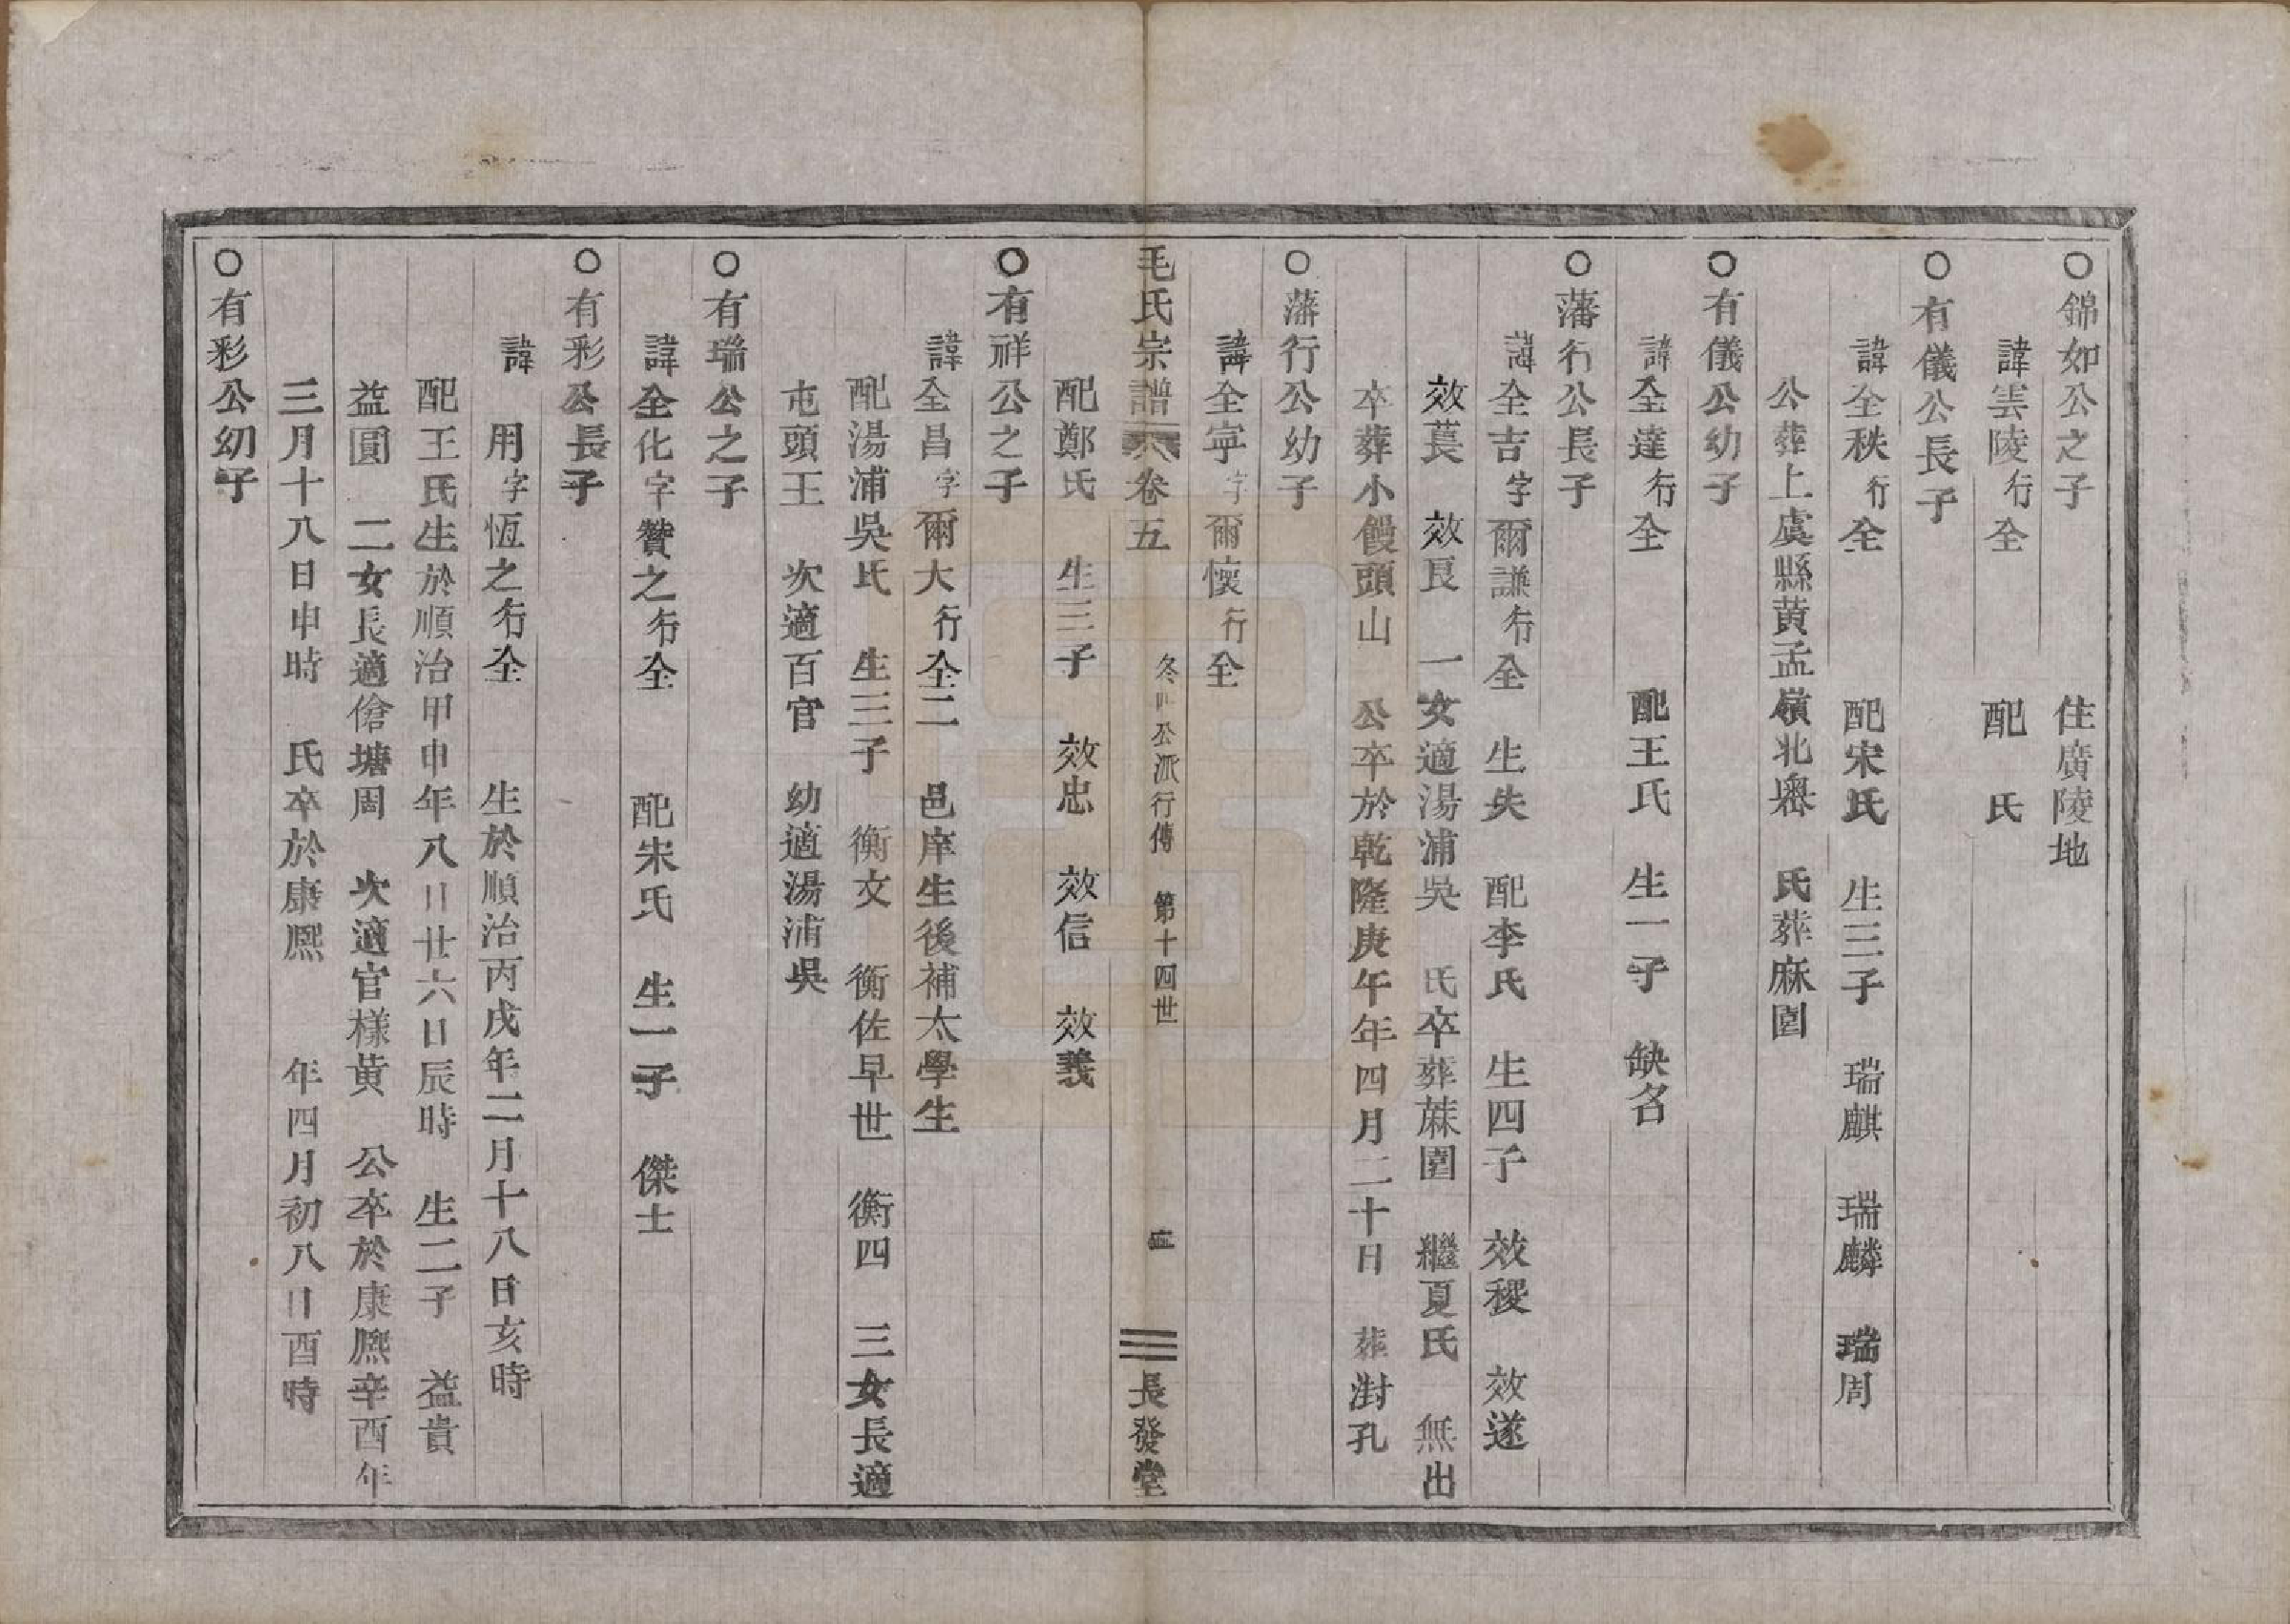 ○錦如公之子　住廣陵地
諱雲陵行全　配　氏
○有儀公長子
諱全秩行全　配宋氏　生三子　瑞麒　瑞麟　瑞周
公葬上虞縣黃孟嶺北嶴　氏葬麻園
○有儀公幼子
諱全達行全　配王氏　生一子　缺名
○藩行公長子
諱全吉字爾謙行全　生失　配李氏　生四子　效稷　效遂
效萇　效良　一女適湯浦吳　氏卒葬蔴園　繼夏氏　無出
卒葬小饅頭山　公卒於乾隆庚午年四月二十日　葬澍孔
○藩行公幼子
諱全寧字爾懷行全
毛氏宗譜　卷五　公派行傳　第十四世　長發堂
配鄭氏　生三子　效忠　效信　效義
○有祥公之子
諱全昌字爾大行全二　邑庠生後補太學生
配湯浦吳氏　生三子　衡文　衡佐早世　衡四　三女長適
屯頭王　次適百官　幼適湯浦吳
○有瑞公之子
諱全化字贊之行全　配宋氏　生一子　傑士
○有彩公長子
諱　用字恆之行全　生於順治丙戌年二月十八日亥時
配王氏生於順治甲申年八月廿六日辰時　生二子　益貴
益圓　二女長適傖塘周　次適官樣黃　公卒於康熈辛酉年
三月十八日申時　氏卒於康熈　年四月初八日酉時
○有彩公幼子